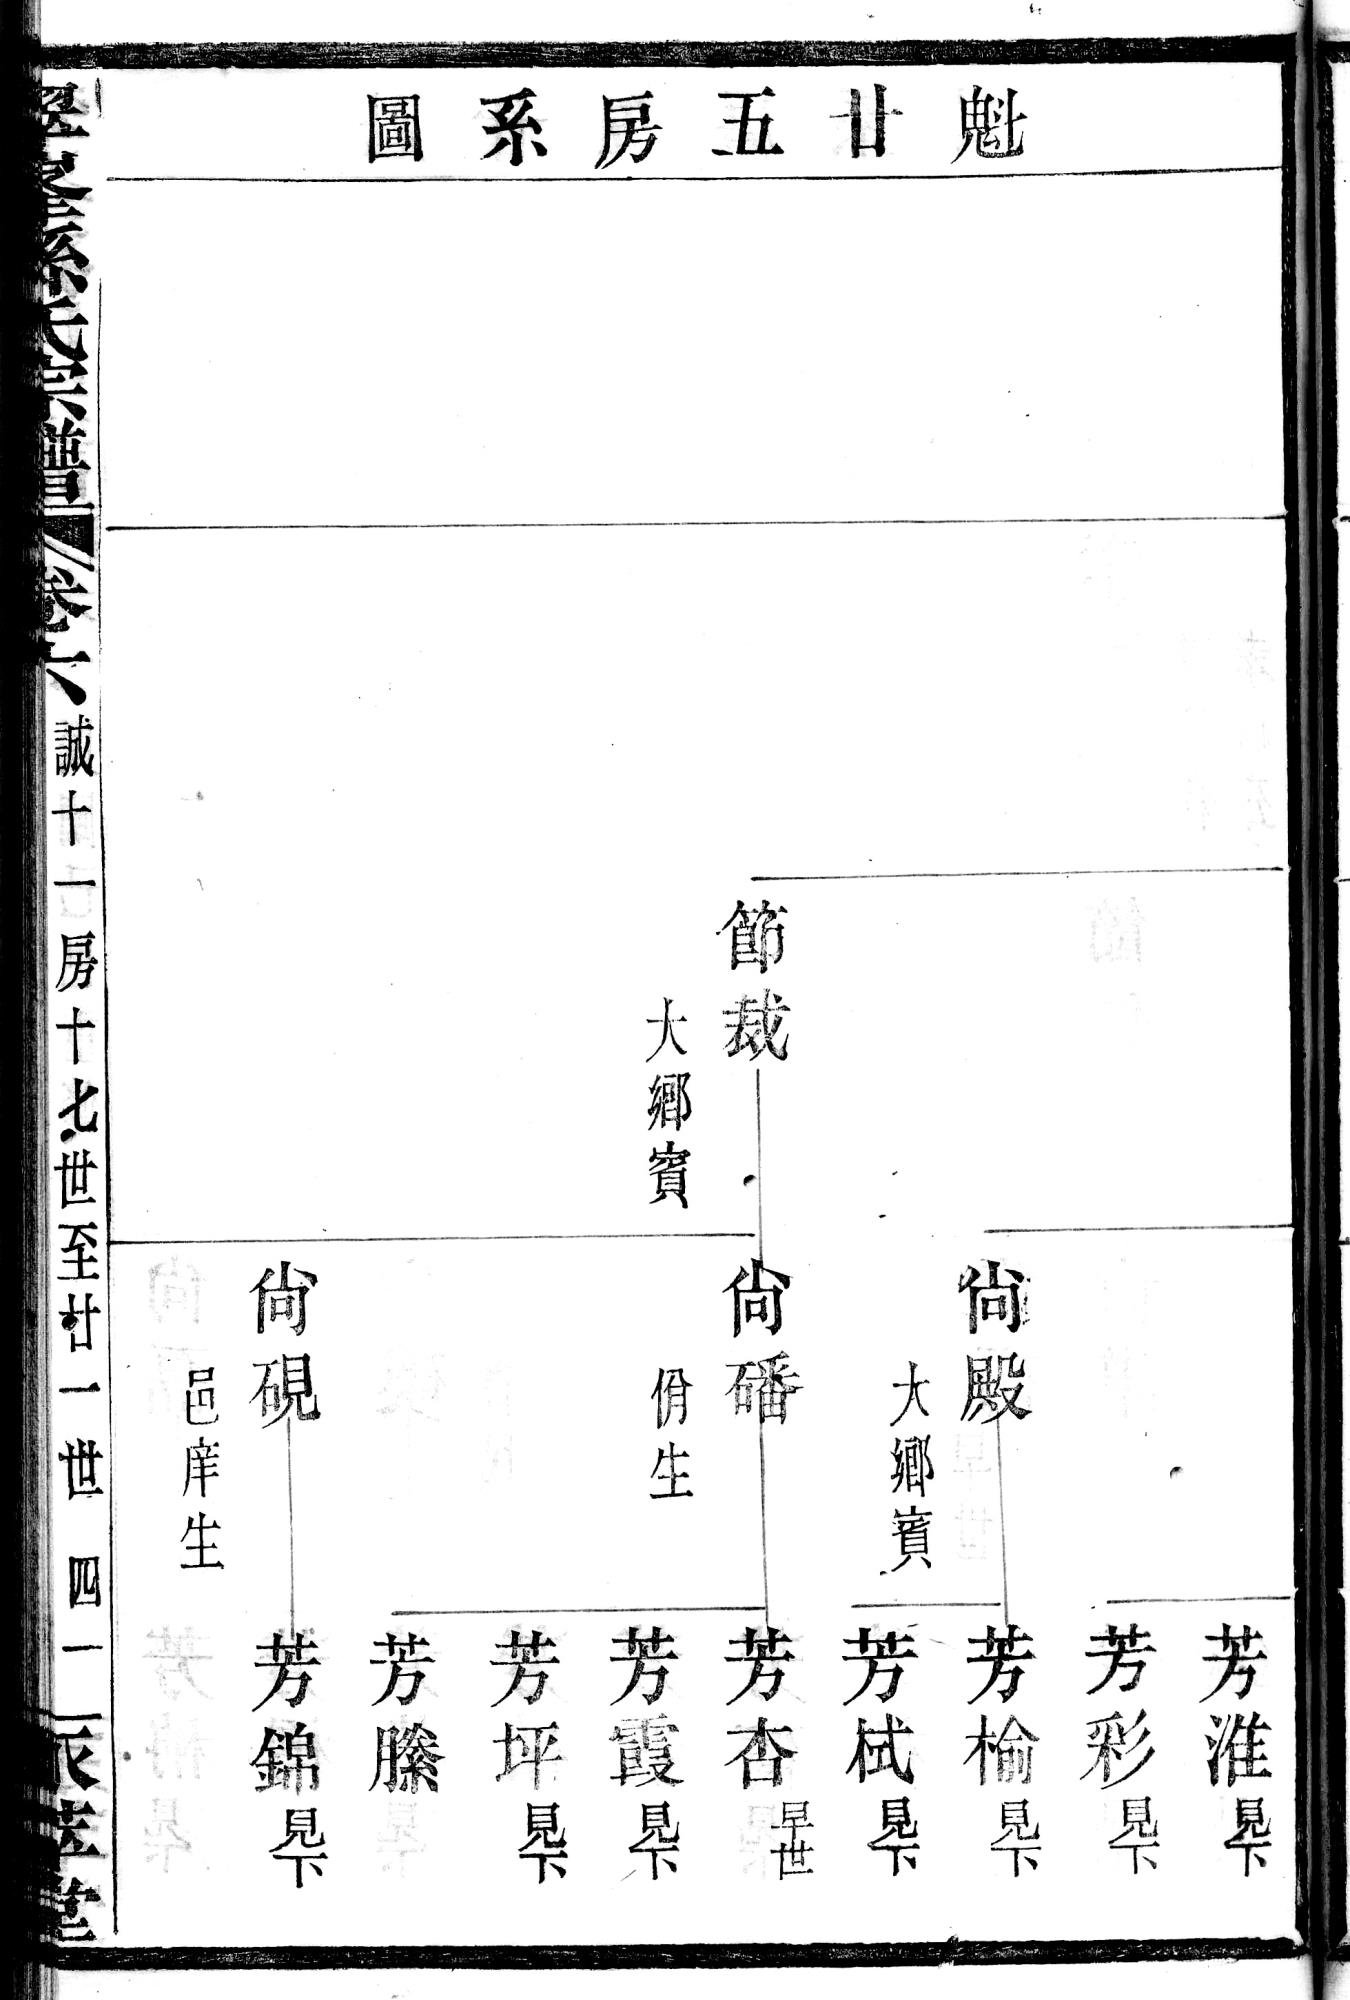 魁廿五房系圖
芳淮 見下
芳彩 見下
尙殿 大鄉賓
芳榆 見下
芳栻 見下
節裁 大鄉賓
尙磻 佾生
芳杏 早世
芳霞 見下
芳坪 見下
芳縢
尙硯 邑庠生
芳錦 見下
孫氏宗譜 卷六 誠十一房十七世至廿一世 四一 堂